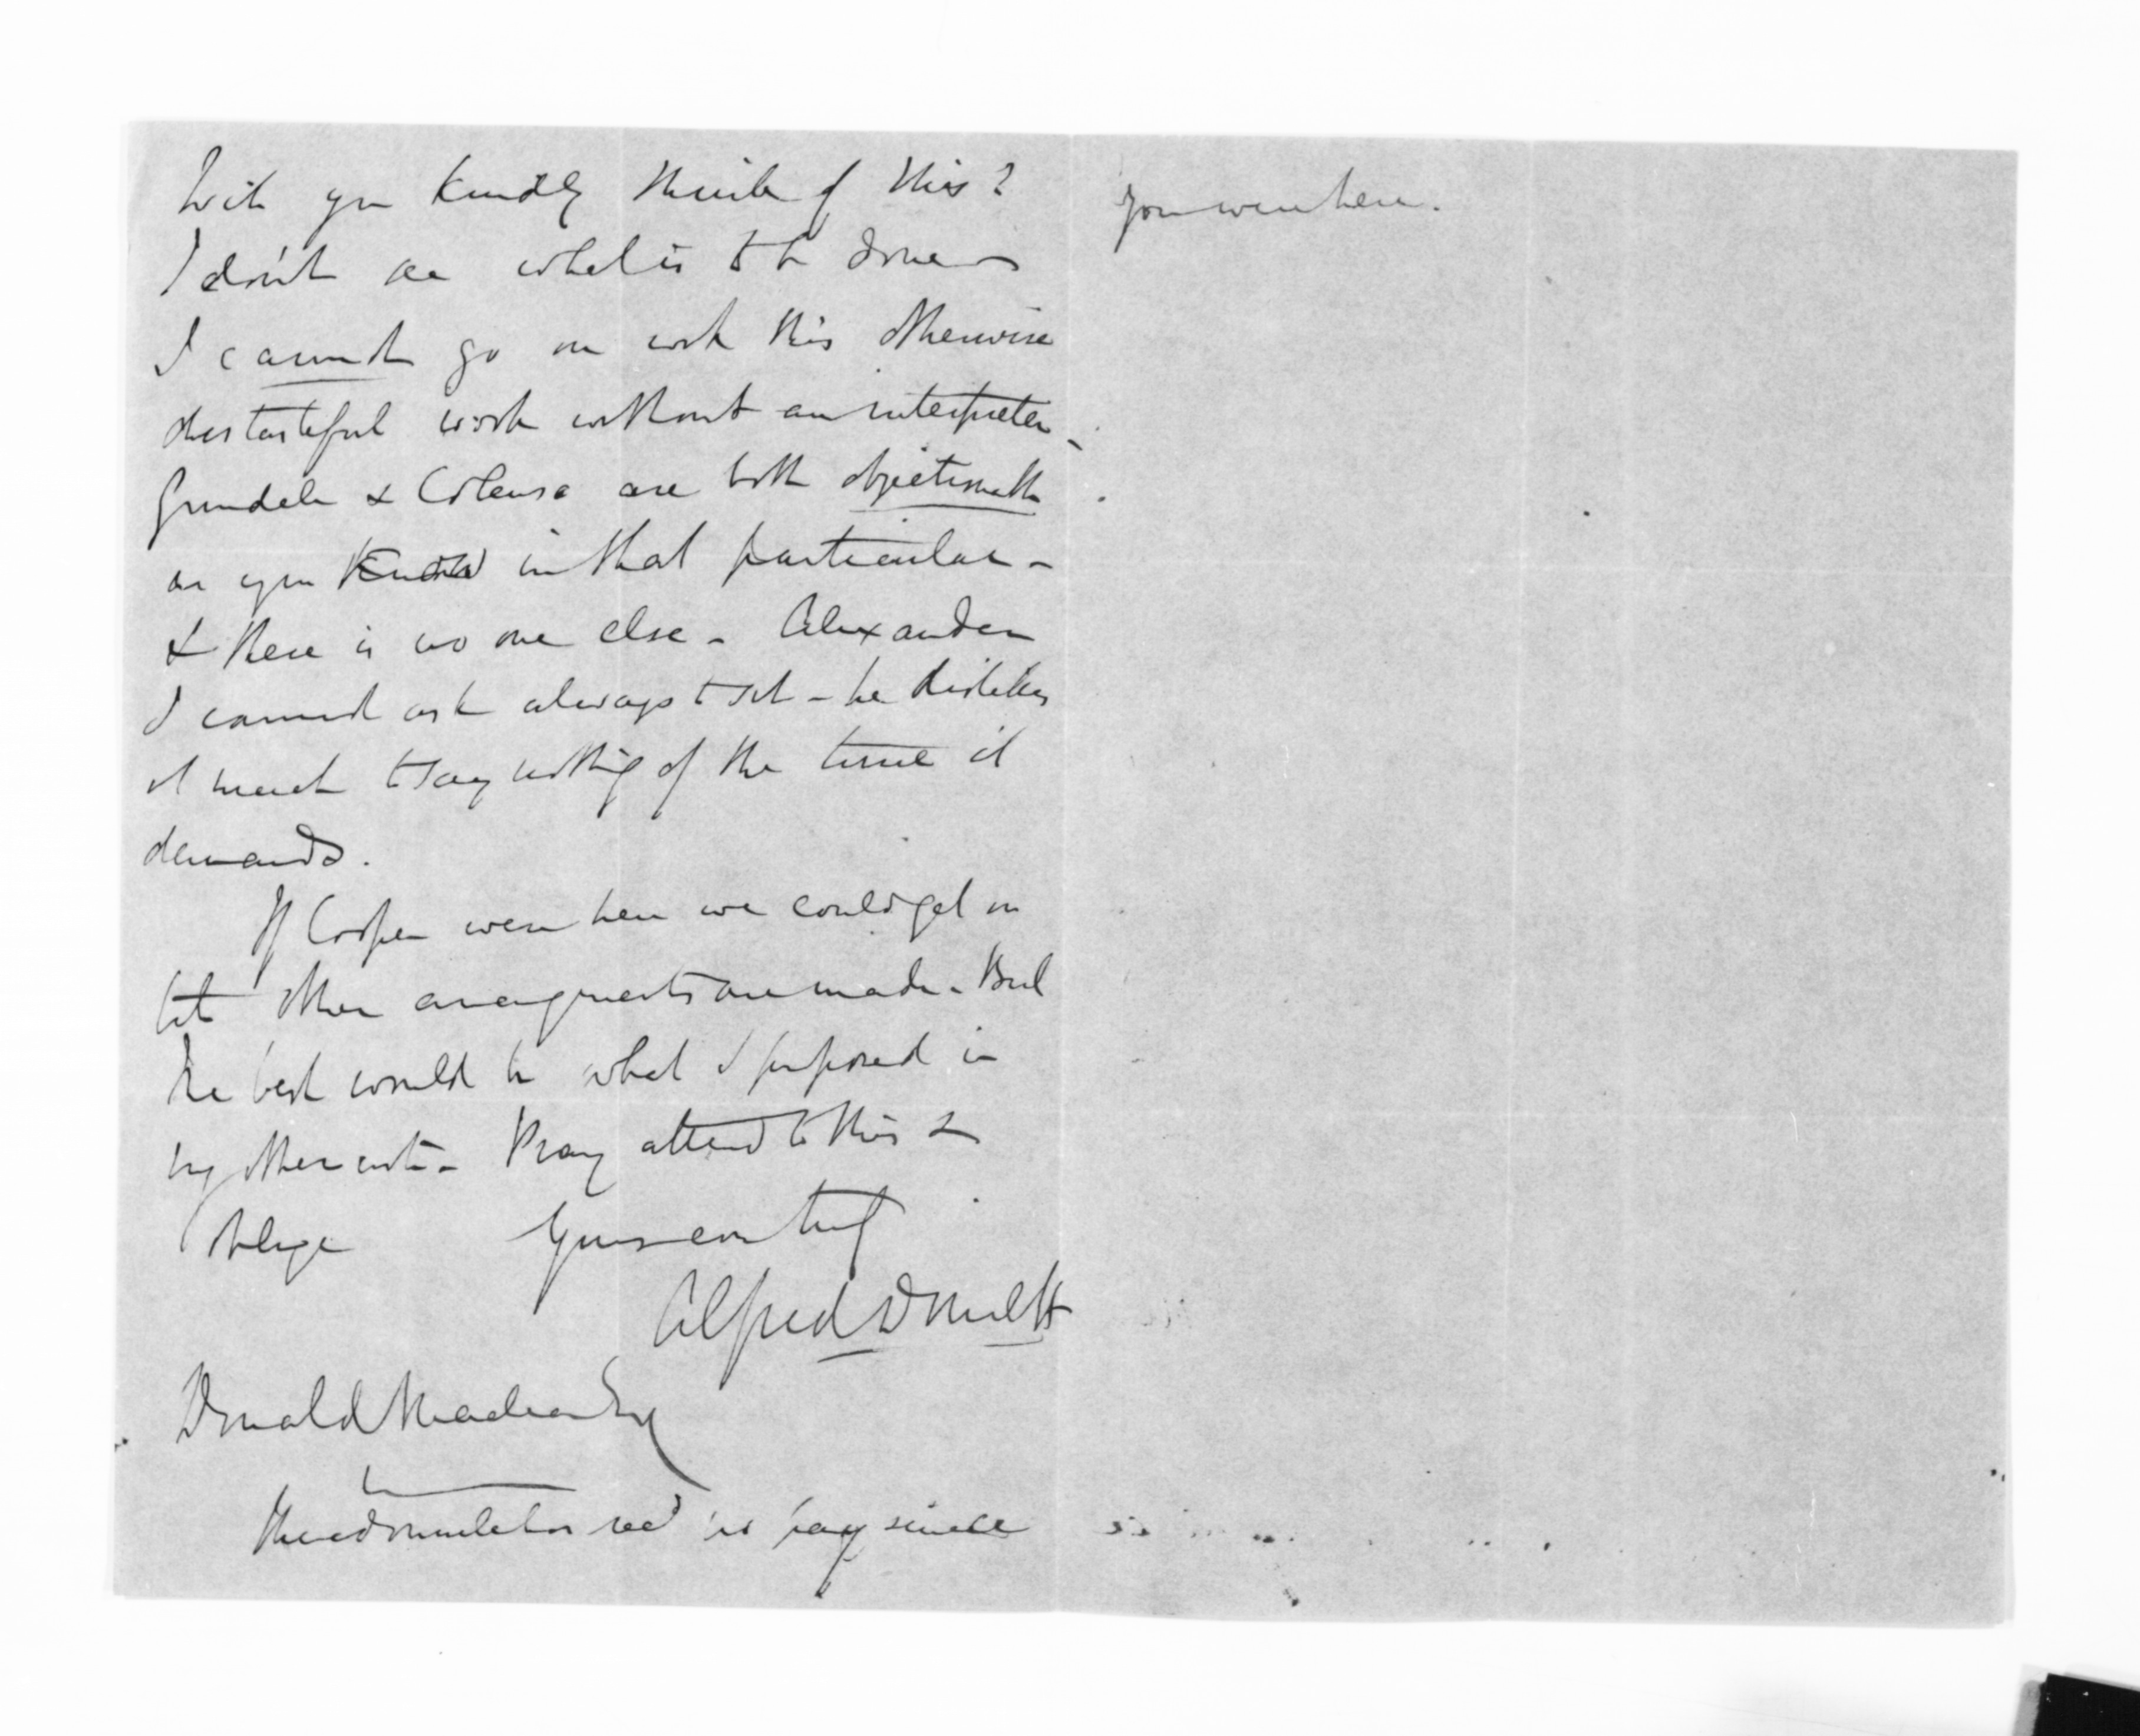 Will you kindly think of this?
I don't see what is to be done
I cannot go on with this otherwise
distasteful work without an interpreter -
Grindell & Colenso are both objectionable
as you know in that particular -
& there is no one else - Alexander
I cannot ask always to sit - he dislikes
it much to say nothing of the time it
demands.
If Cooper were here we could get on
but other arrangements are made. But
the best would be what I proposed in
my other note - Pray attend to this &
oblige Yours ever truly
Alfred Domett
Donald Maclean Esq
The has recd no pay since
you were here.